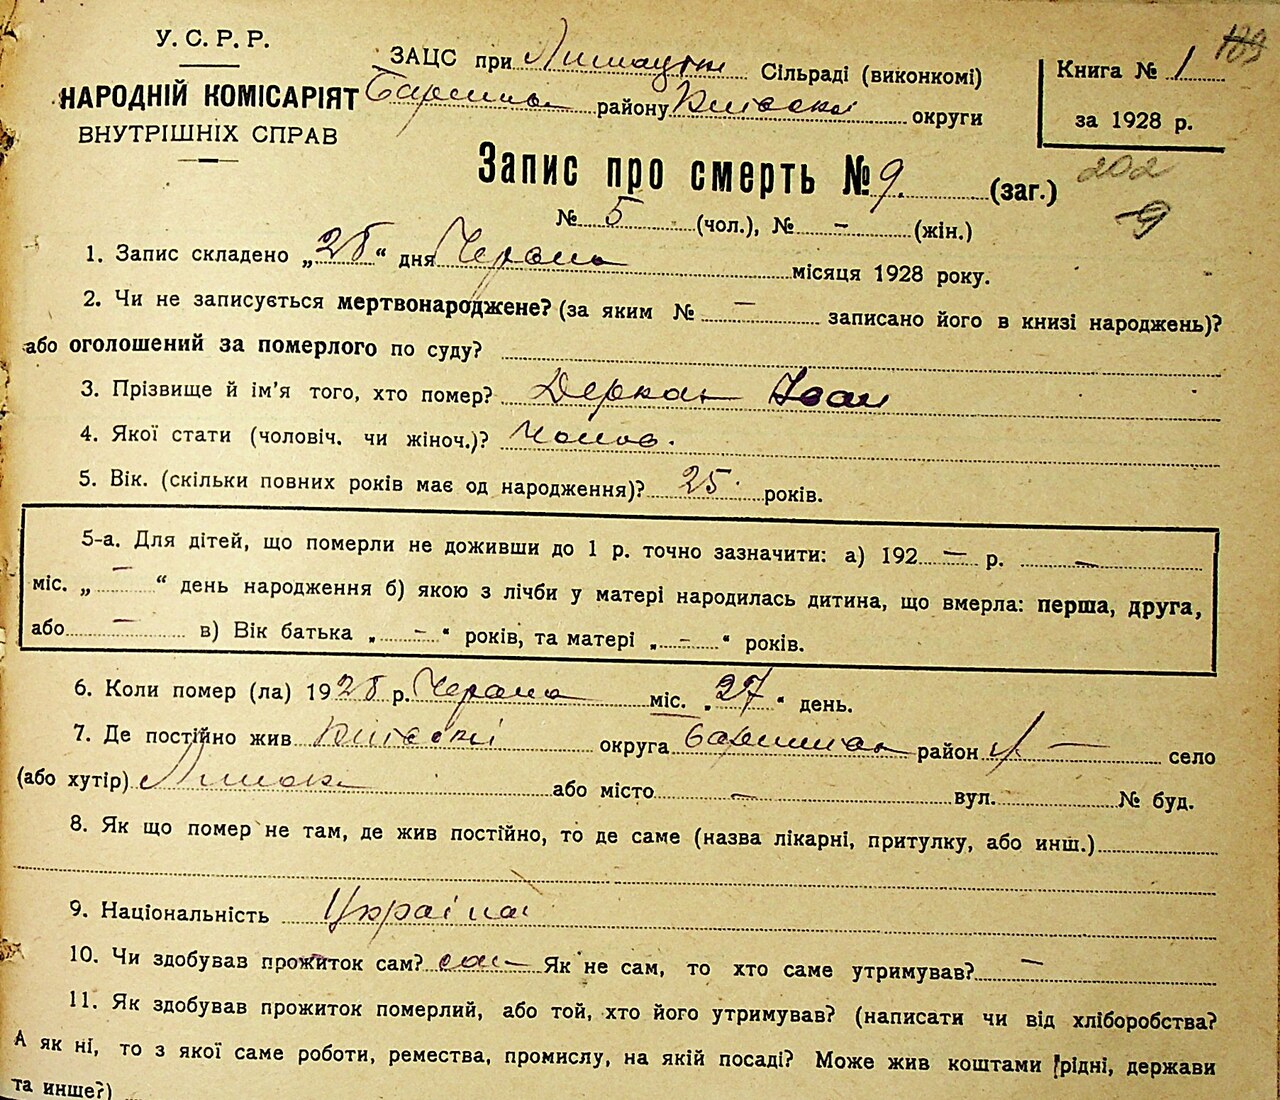 189
У. С. Р. Р.
НАРОДНІЙ КОМІСАРІЯТ
ВНУТРІШНІХ СПРАВ
ЗАЦС при Сільраді (виконкомі)
району Київскої округи
Книга № 1
за 1928 р.
Запис про смерть № 9. (заг.)
202
9
№ 5 (чол.), № – (жін.)
1. Запис складено „28“ дня Червня місяця 1928 року.
2. Чи не записується мертвонароджене? (за яким № – записано його в книзі народжень)?
або оголошений за померлого по суду?
3. Прізвище й ім’я того, хто помер? Деркач Іван
4. Якої стати (чоловіч. чи жіноч.)? Чолов.
5. Вік. (скільки повних років має од народження)? 25 років.
5-а. Для дітей, що померли не доживши до 1 р. точно зазначити: а) 192 – р. –
міс. „ – “ день народження б) якою з лічби у матері народилась дитина, що вмерла: перша, друга,
або – в) Вік батька „ – “ років, та матері „ – “ років.
6. Коли помер (ла) 1928 р. Червня міс. „27“ день.
7. Де постійно жив Київскої округа район – село
(або хутір) або місто – вул. № буд.
8. Як що помер не там, де жив постійно, то де саме (назва лікарні, притулку, або инш.)
9. Національність Українец
10. Чи здобував прожиток сам? сам Як не сам, то хто саме утримував? –
11. Як здобував прожиток померлий, або той, хто його утримував? (написати чи від хліборобства?
А як ні, то з якої саме роботи, ремества, промислу, на якій посаді? Може жив коштами рідні, держави
та инше?)